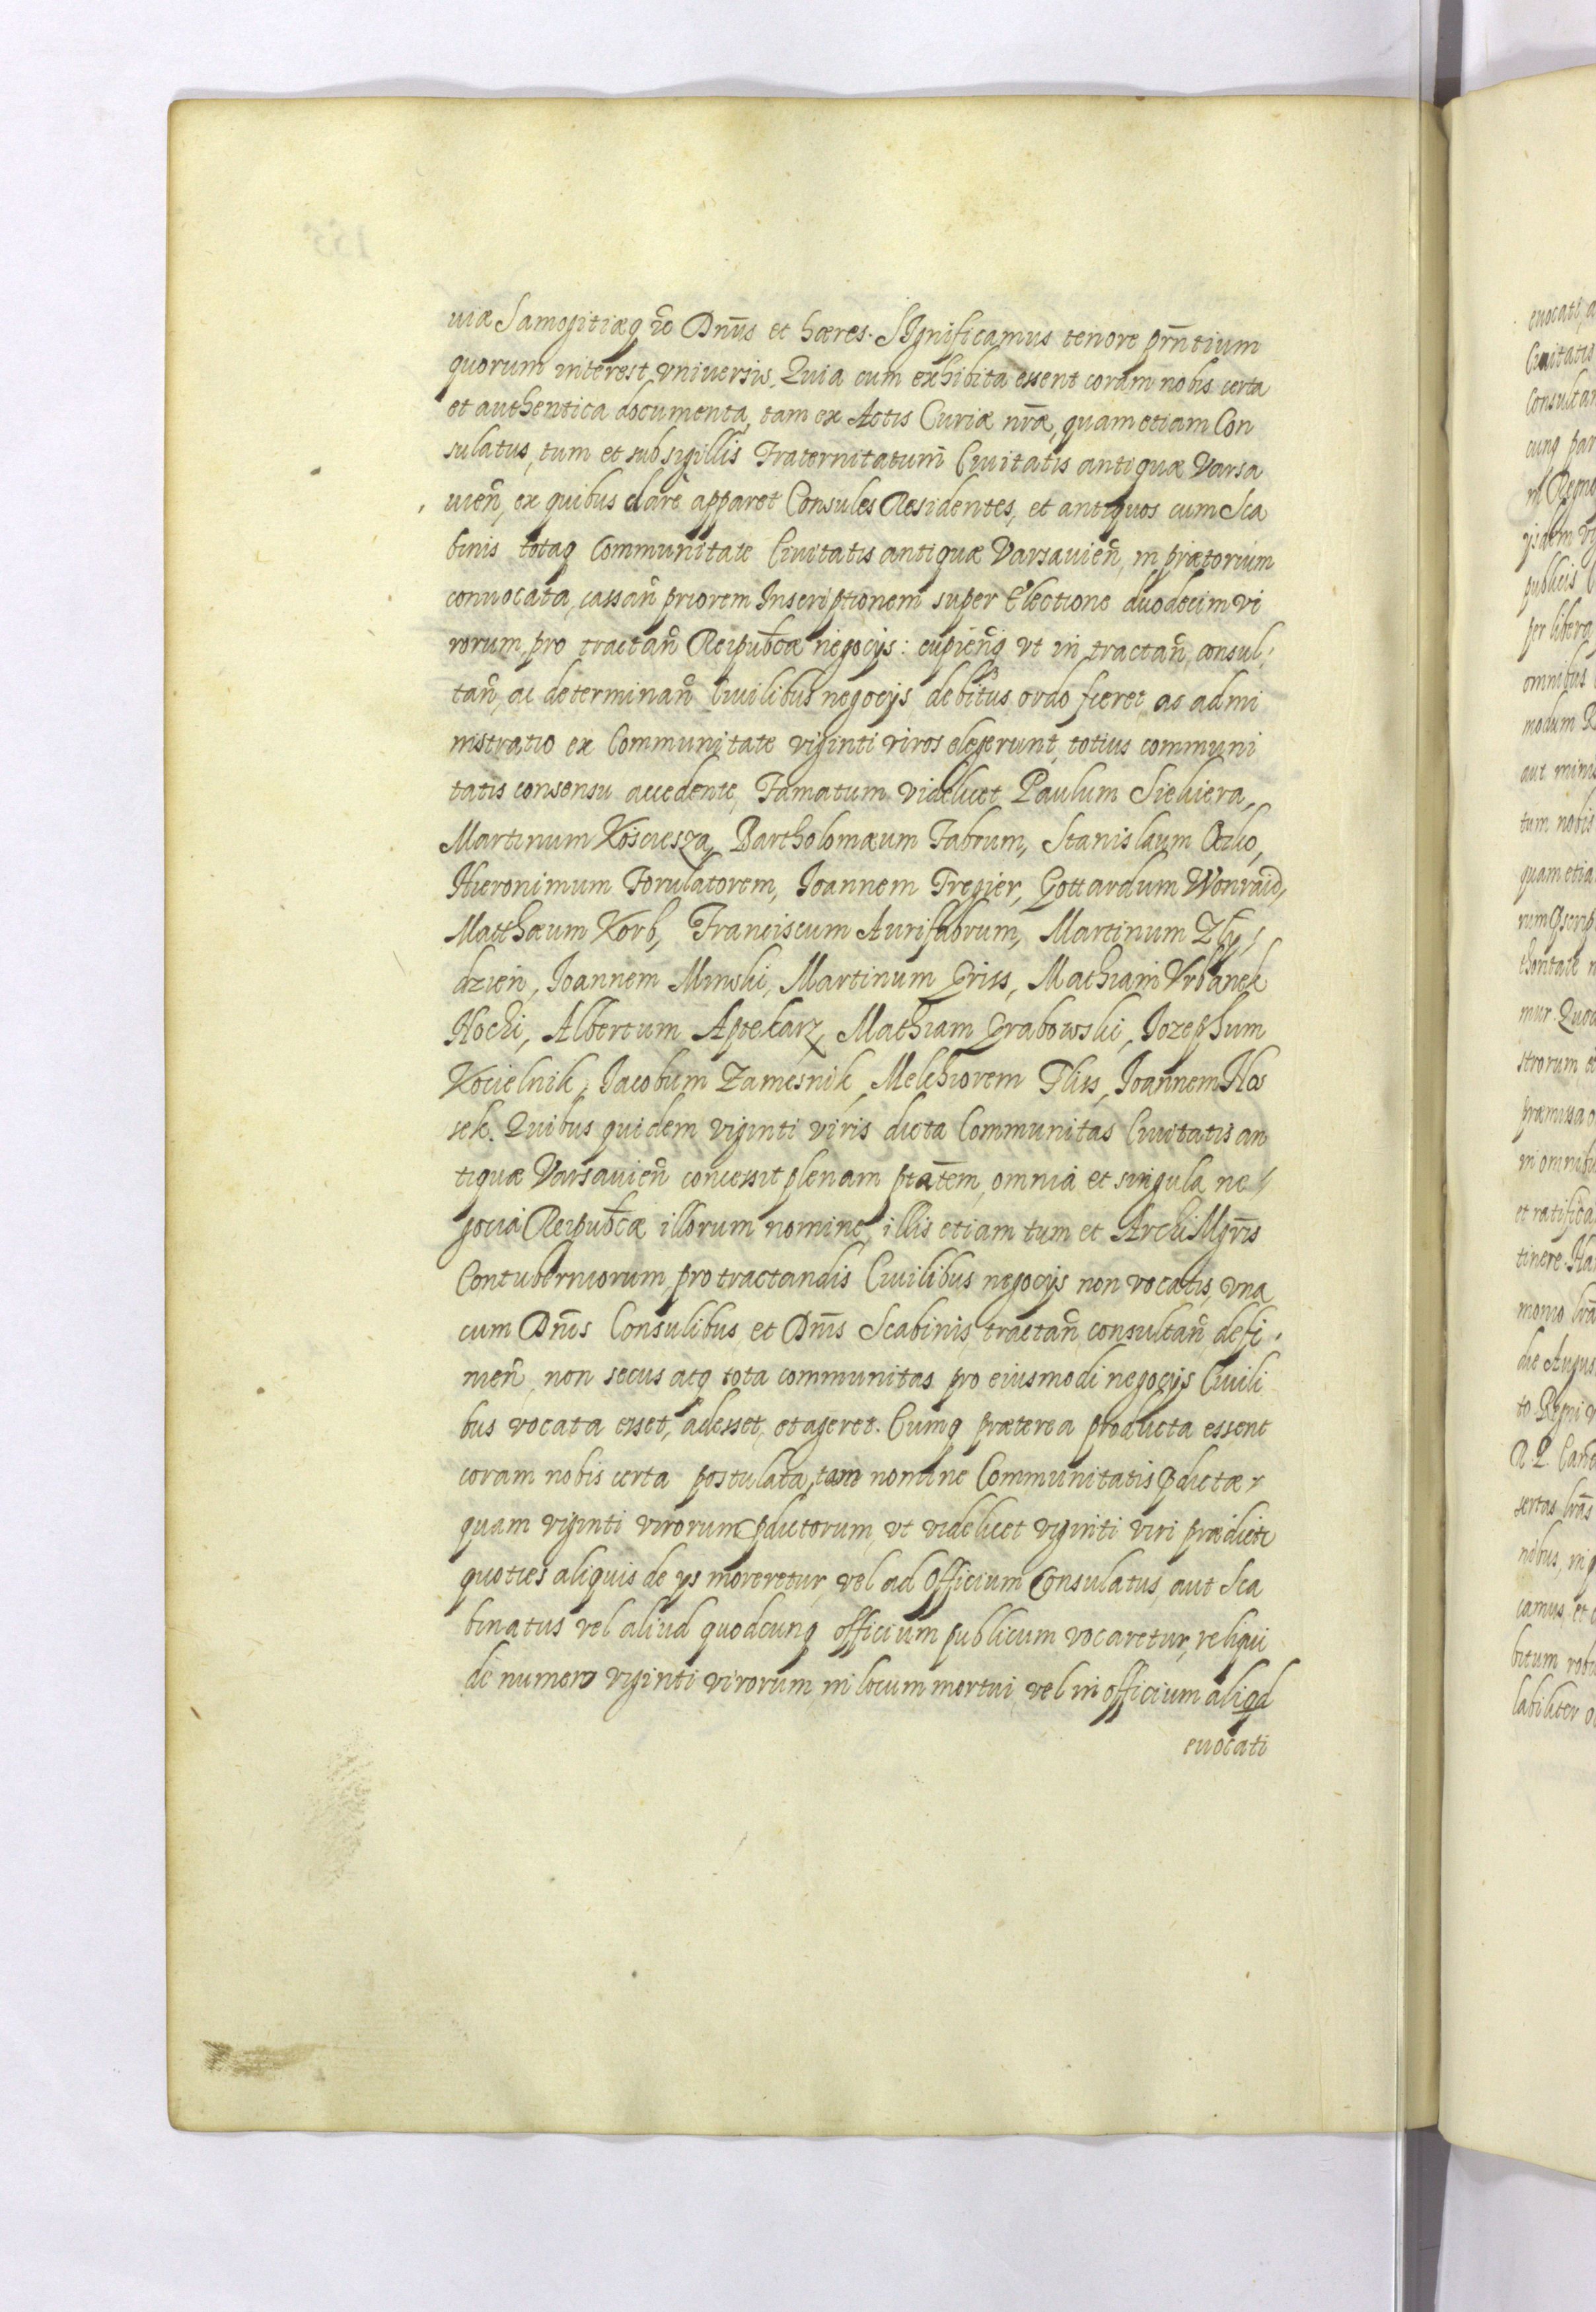 uiæ Samogitiæq́ꝫ Dñus et hæres. SIgnificamus tenore prñtium
quorum interest vniuersis. Quia cum exhibita essent coram nobis certa
et authentica documenta, tam ex Actis Curiæ nr̃æ, quam etiam Con
sulatus, tum et sub sigillis Fraternitatum Ciuitatis antiquæ Varsa
uieñ, ex quibus clarè apparet Consules Residentes, et antiquos cum Sca
binis totaq Communitate Ciuitatis antiquæ Varsauieñ, in prætorium
conuocata, cassañ priorem Inscriptionem super Electione duodecim vi
rorum, pro tractañ Reipub̃cæ negocijs: cupieñq vt in tractañ, consul:
tañ, ac determinañ Ciuilibus negocijs debitus ordo fieret, ac admi
nistratio ex Communitate viginti viros elegerunt, totius communi
tatis consensu accedente, Famatum videlicet Paulum Siekiera,
Martinum Kosciesza, Bartholomæum Fabrum, Stanislaum
Hieronimum Torulatorem, Joannem Tregier, Gottardum Wonraid,
Matthæum Korb, Franciscum Aurifabrum, Martinum Zły/
dzien, Joannem Minski, Martinum Griss, Mathiam Vrbanek
Hocki, Albertum Aptekarz, Mathiam Grabowski, Jozephum
Kocielnik, Jacobum Zamesnik, Melchiorem Pliss, Joannem Hos
sek. Quibus quidem viginti viris dicta Communitas Ciuitatis an
tiquæ Varsauieñ concessit plenam ptãtem, omnia et singula ne/
gocia Reipub̃cæ illorum nomine, illis etiam tum et ArchiMgr̃is
Contuberniorum, pro tractandis Ciuilibus negocijs non vocatis, vna
cum Dñis Consulibus, et Dñis Scabinis, tractañ, consultañ, defi:
nieñ, non secus atq tota communitas pro eiusmodi negocijs Ciuili
bus vocata esset, adesset, et ageret. Cumq præterea producta essent
coram nobis certa postulata, tam nomine Communitatis p̃dictæ
quam viginti virorum p̃dictorum, vt videlicet viginti viri prædicti
quoties aliquis de ijs moreretur, vel ad Officium Consulatus, aut Sca
binatus vel aliud quodcunq officium publicum vocaretur, reliqui
de numero viginti virorum in locum mortui, vel in officium aliqd
euocati